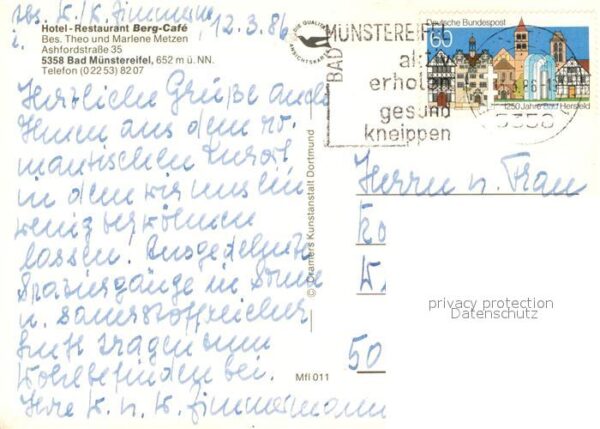 Abs. K./K. Zimmermann
12.3.86
Hotel-Restaurant Berg-Café
Bes. Theo und Marlene Metzen
Ashfordstraße 35
5358 Bad Münstereifel, 652 m ü. NN.
Telefon (0 22 53) 82 07
Herzliche Grüße auch
Ihnen aus dem ro-
mantischen Kurort
in dem wir uns ein
wenig verwöhnen
lassen! Ausgedehnte
Spaziergänge in Sonne
u. sauerstoffreicher
Luft tragen zum
Wohlbefinden bei.
Ihre K. u. K. Zimmermann
DIE QUALITÄTS
ANSICHTSKARTE
© Cramers Kunstanstalt Dortmund
Mfl 011
BAD
MÜNSTEREIFEL
erholen
gesund
kneippen
Deutsche Bundespost
65
1250 Jahre Bad Hersfeld
5358
Herrn u. Frau
50
privacy protection
Datenschutz